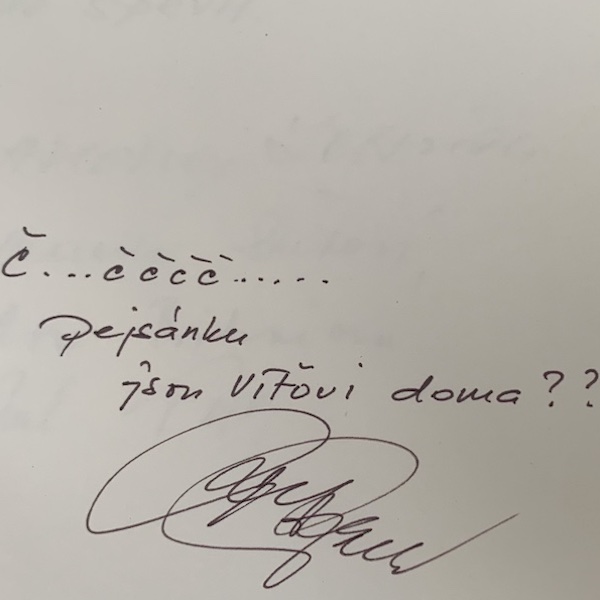 Č...čččč.....
pejsánku
json Vítovi doma??